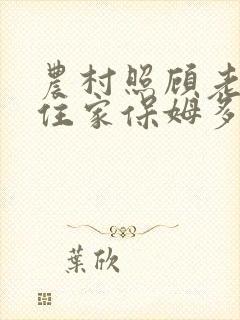 農村照顧老
住家保姆多
葉欣